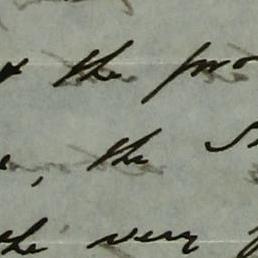 the pro
, the S
the very